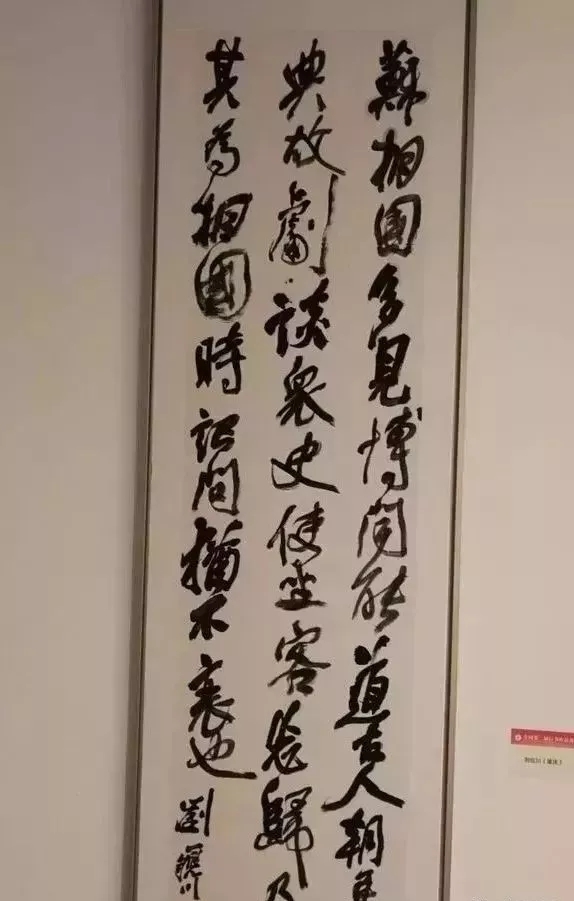 蘇相國多見博聞能道古人朝
典故劇談衆史使坐客忘歸及
其為相國時記問猶不衰也
劉川